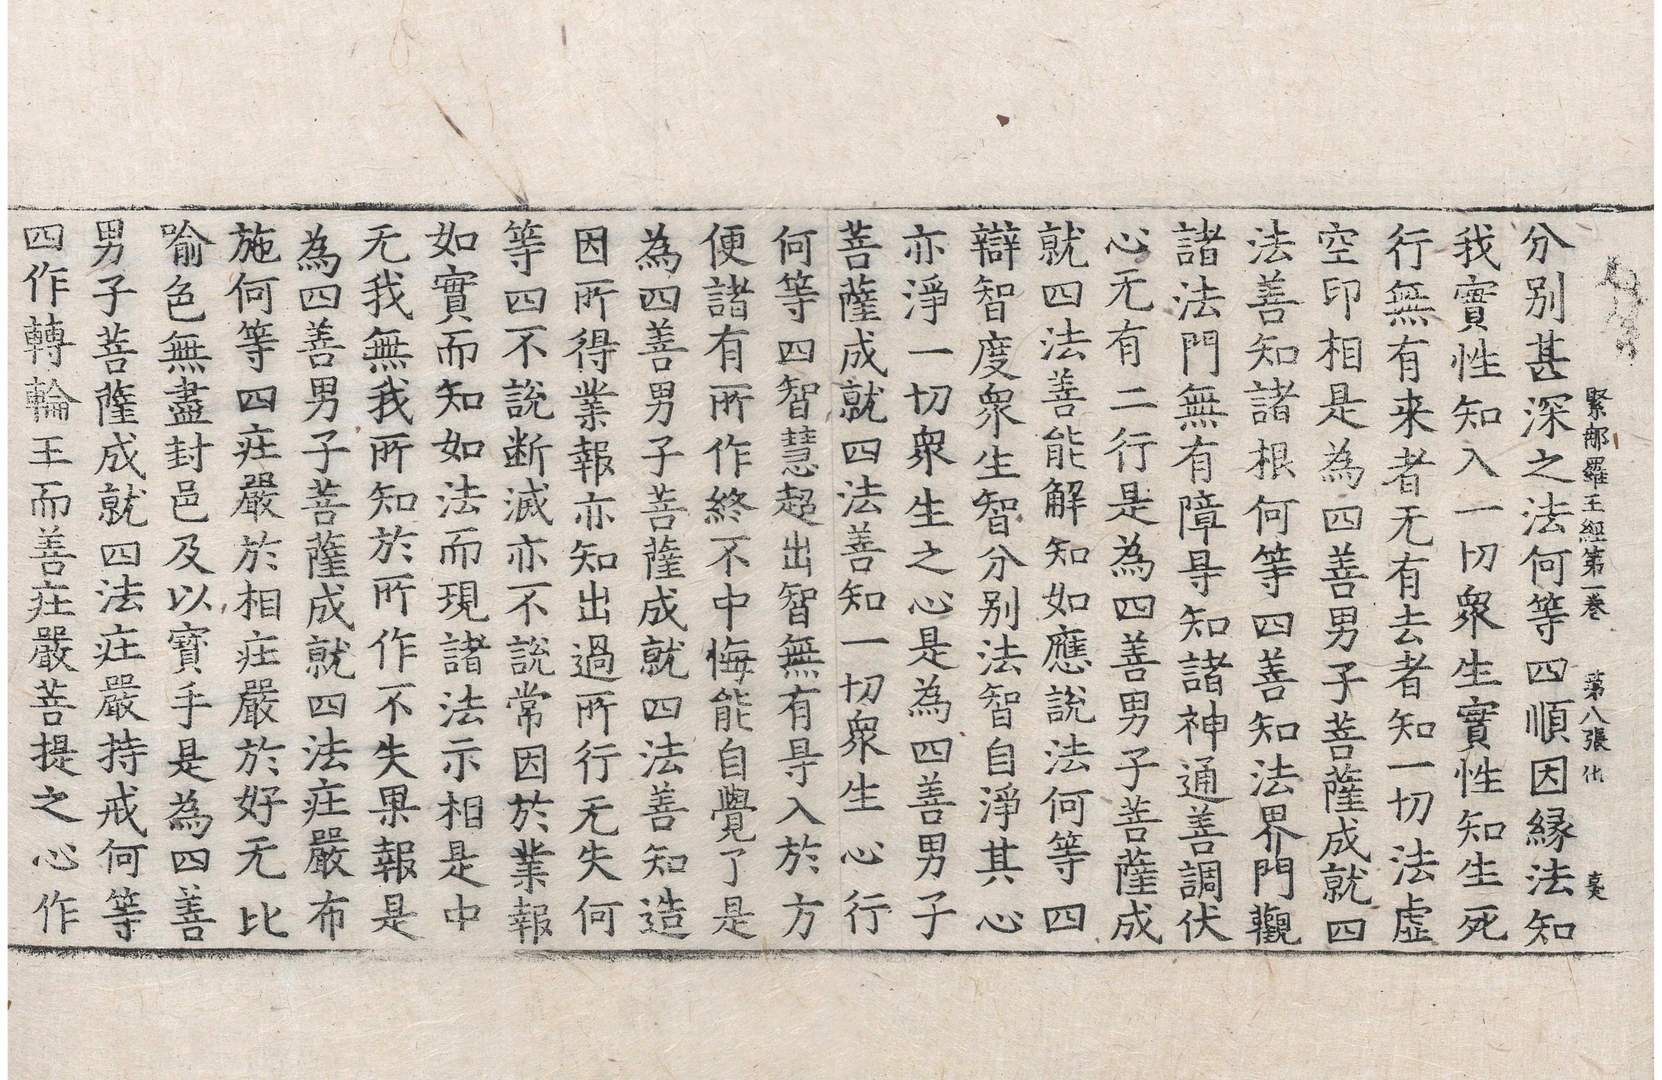 緊那羅王經第一卷　第八張　化　
分別甚深之法何等四順因緣法知
我實性知入一切衆生實性知生死
行無有来者无有去者知一切法虛
空印相是為四善男子菩薩成就四
法善知諸根何等四善知法界門觀
諸法門無有障㝵知諸神通善調伏
心无有二行是為四善男子菩薩成
就四法善能解知如應說法何等四
辯智度衆生智分別法智自淨其心
亦淨一切衆生之心是為四善男子
菩薩成就四法善知一切衆生心行
何等四智慧超出智無有㝵入於方
便諸有所作終不中悔能自覺了是
為四善男子菩薩成就四法善知造
因所得業報亦知出過所行无失何
等四不說断滅亦不說常因於業報
如實而知如法而現諸法示相是中
无我無我所知於所作不失果報是
為四善男子菩薩成就四法庄嚴布
施何等四庄嚴於相庄嚴於好无比
喻色無盡封邑及以寳手是為四善
男子菩薩成就四法庄嚴持戒何等
四作轉輪王而善庄嚴菩提之心作